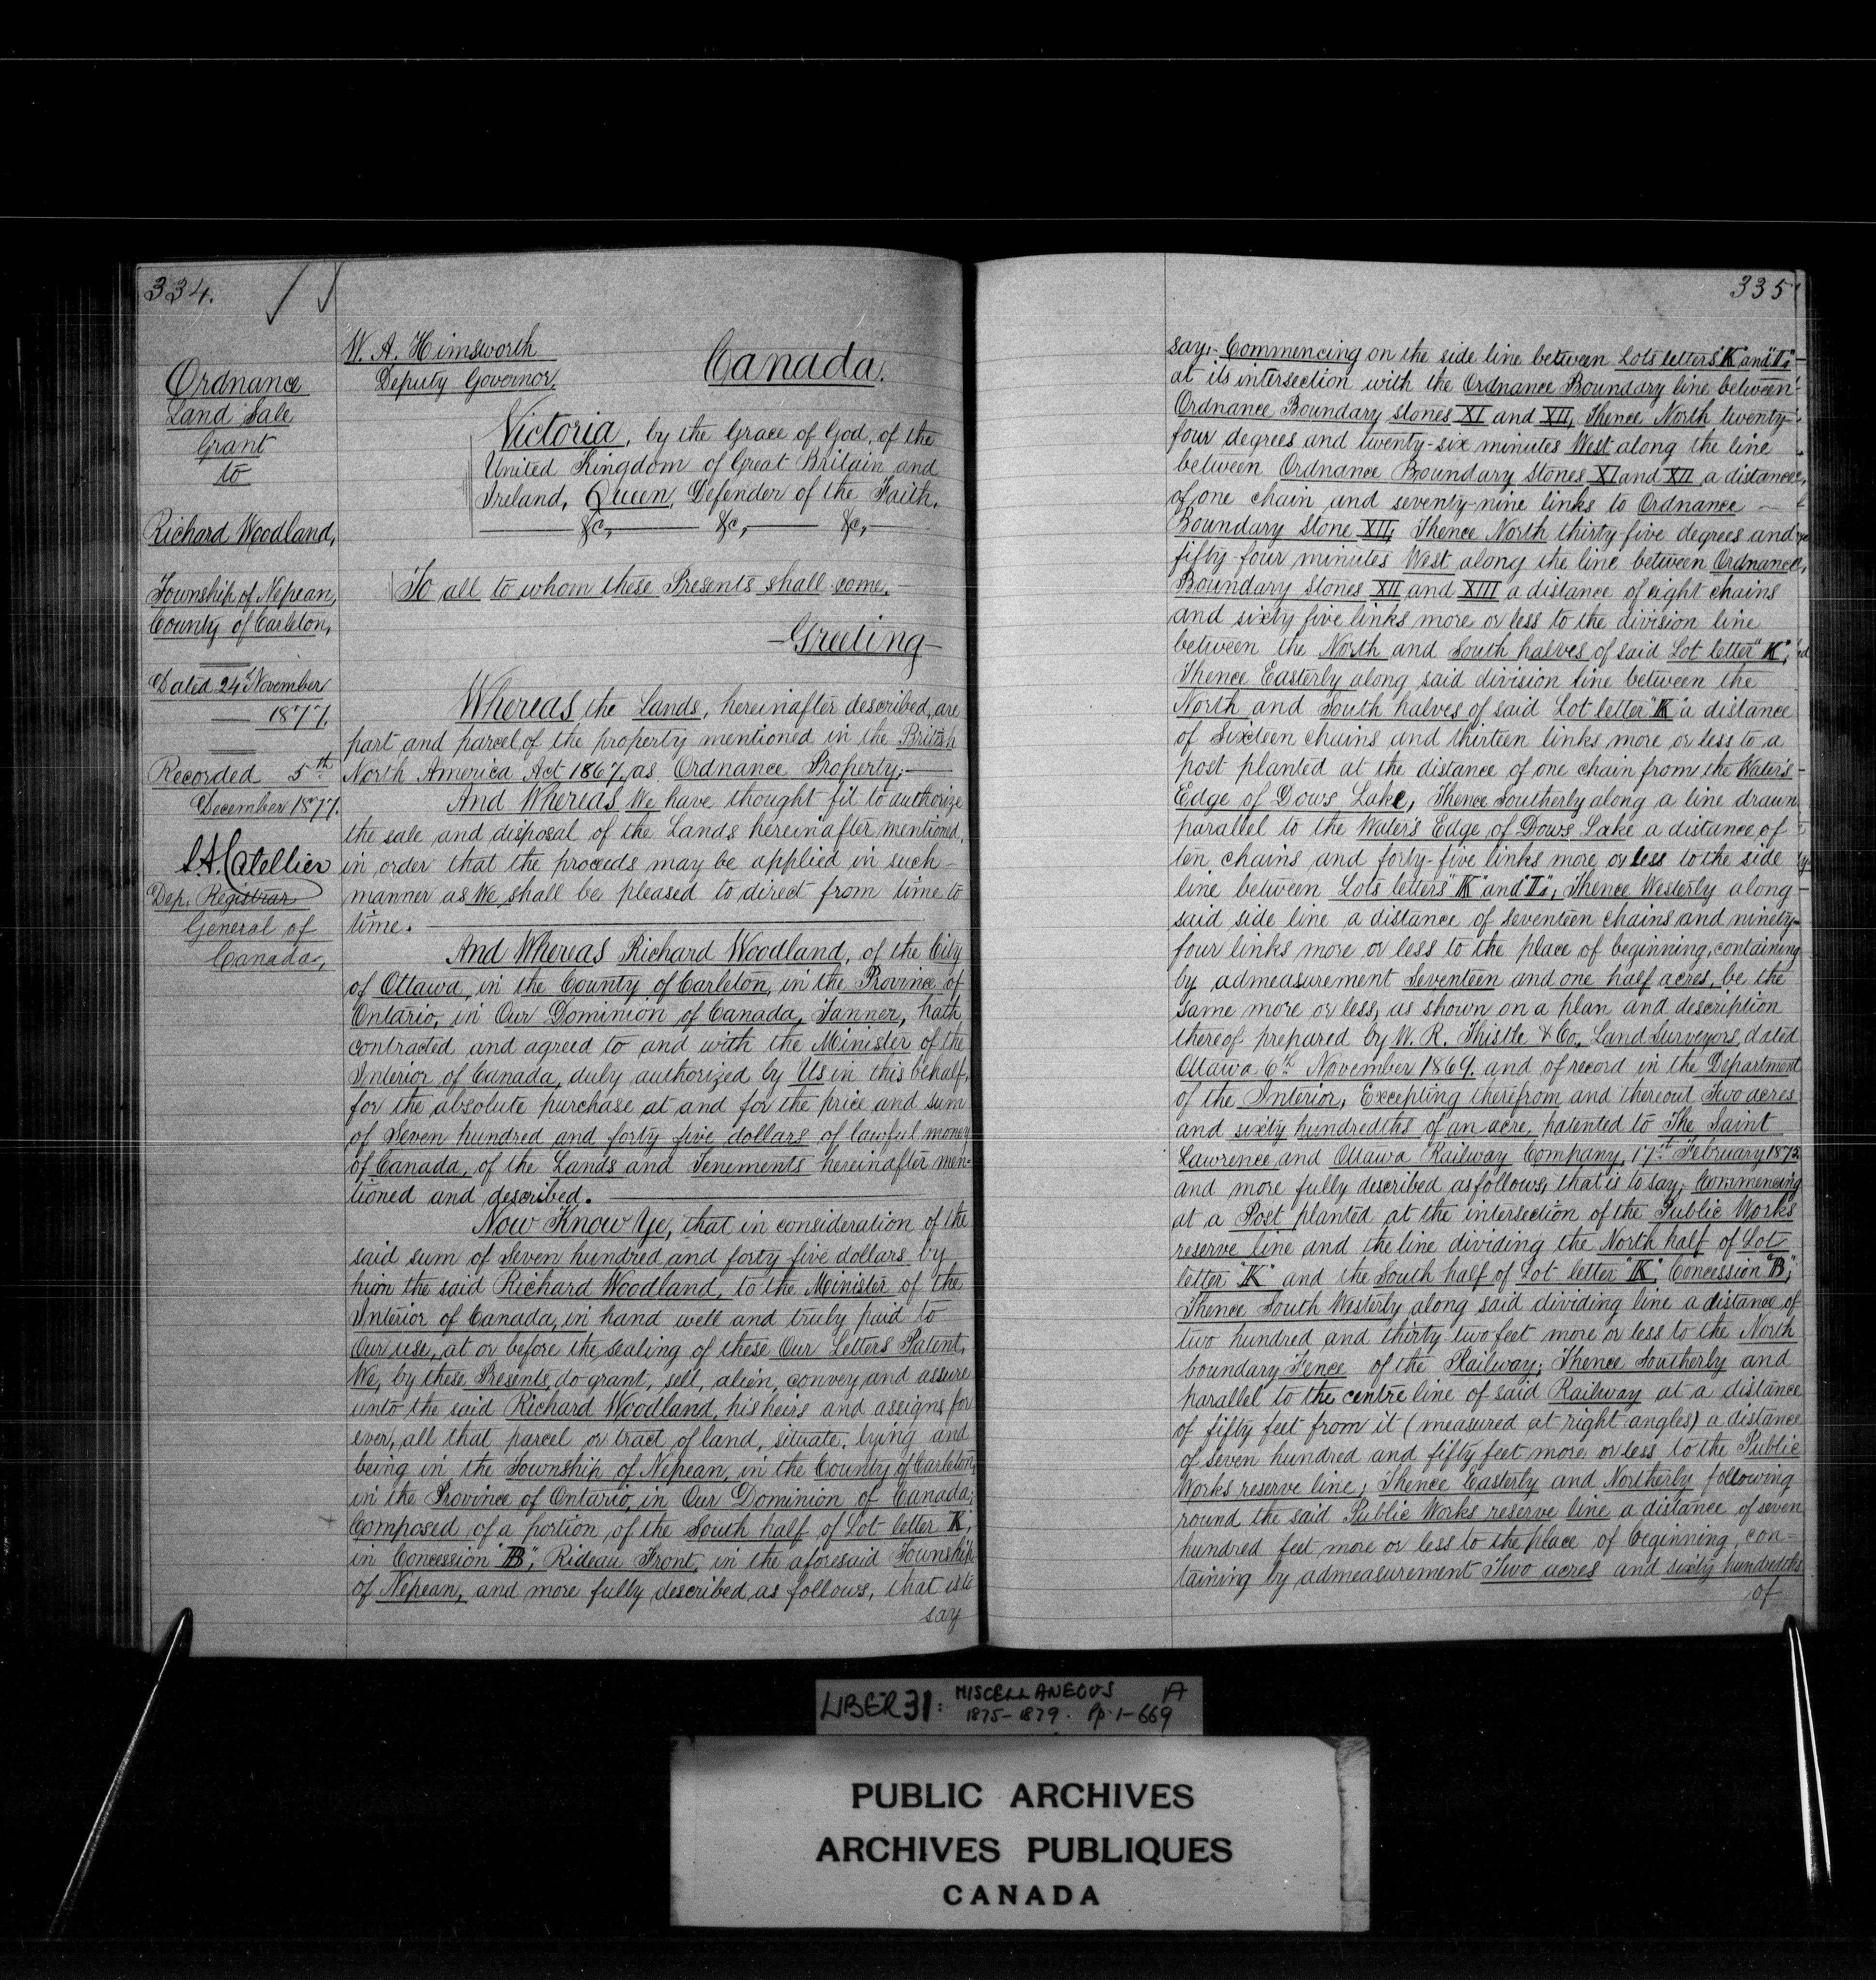 334.
Ordnance
Land Sale
Grant
to
Richard Woodland,
Township of Nepean,
County of Carleton,
Dated 24th November
1877.
Recorded 5th
December 1877.
L.A. Catellier
Dep. Registrar
General of
Canada,
W. A. Himsworth
Deputy Governor.
Canada.
Victoria, by the Grace of God, of the
United Kingdom of Great Britain and
Ireland, Queen, Defender of the Faith,
&c, &c, &c,
To all to whom these Presents shall come.
—Greeting—
Whereas the Lands, hereinafter described, are
part and parcel of the property mentioned in the British
North America Act 1867, as Ordnance Property;—
And Whereas We have thought fit to authorize
the sale and disposal of the Lands hereinafter mentioned,
in order that the proceeds may be applied in such
manner as We shall be pleased to direct from time to
time.
And Whereas Richard Woodland, of the City
of Ottawa, in the County of Carleton, in the Province of
Ontario, in Our Dominion of Canada, Tanner, hath
contracted and agreed to and with the Minister of the
Interior of Canada, duly authorized by Us in this behalf,
for the absolute purchase at and for the price and sum
of Seven hundred and forty five dollars of lawful money
of Canada, of the Lands and Tenements hereinafter men-
tioned and described.
Now Know Ye, that in consideration of the
said sum of Seven hundred and forty five dollars by
him the said Richard Woodland, to the Minister of the
Interior of Canada, in hand well and truly paid to
Our use, at or before the sealing of these Our Letters Patent,
We, by these Presents, do grant, sell, alien, convey and assure
unto the said Richard Woodland, his heirs and assigns for
ever, all that parcel or tract of land, situate, lying and
being in the Township of Nepean, in the County of Carleton,
in the Province of Ontario, in Our Dominion of Canada;
Composed of a portion of the South half of Lot letter K,
in Concession "B", Rideau Front, in the aforesaid Township
of Nepean, and more fully described as follows, that is to
say
335
say:- Commencing on the side line between Lots letters "K" and "I",
at its intersection with the Ordnance Boundary line between
Ordnance Boundary stones XI and XII, Thence North twenty-
four degrees and twenty-six minutes West along the line
between Ordnance Boundary Stones XI and XII a distance
of one chain and seventy-nine links to Ordnance
Boundary Stone XII; Thence North thirty five degrees and
fifty four minutes West along the line between Ordnance
Boundary Stones XII and XIII a distance of eight chains
and sixty five links more or less to the division line
between the North and South halves of said Lot letter "K";
Thence Easterly along said division line between the
North and South halves of said Lot letter "K" a distance
of Sixteen chains and thirteen links more or less to a
post planted at the distance of one chain from the Water's
Edge of Dows Lake, Thence Southerly along a line drawn
parallel to the Water's Edge of Dows Lake a distance of
ten chains and forty-five links more or less to the side
line between Lots letters "K" and "I", Thence Westerly along
said side line a distance of Seventeen chains and ninety-
four links more or less to the place of beginning, containing
by admeasurement Seventeen and one half acres, be the
same more or less, as shown on a plan and description
thereof prepared by W. R. Thistle & Co, Land Surveyors, dated
Ottawa 6th November 1869. and of record in the Department
of the Interior, Excepting therefrom and thereout Two acres
and sixty hundredths of an acre, patented to The Saint
Lawrence and Ottawa Railway Company, 17th February 1872
and more fully described as follows, that is to say; Commencing
at a Post planted at the intersection of the Public Works
reserve line and the line dividing the North half of Lot
letter "K" and the South half of Lot letter "K", Concession "B";
Thence South Westerly along said dividing line a distance of
two hundred and thirty two feet more or less to the North
boundary Fence of the Railway; Thence Southerly and
parallel to the centre line of said Railway at a distance
of fifty feet from it (measured at right angles) a distance
of seven hundred and fifty feet more or less to the Public
Works reserve line; Thence Easterly and Northerly following
round the said Public Works reserve line a distance of seven
hundred feet more or less to the place of beginning, con=
taining by admeasurement Two acres and sixty hundredths
of
LIBER 31: MISCELLANEOUS A
1875-1879. Pp. 1-669
PUBLIC ARCHIVES
ARCHIVES PUBLIQUES
CANADA